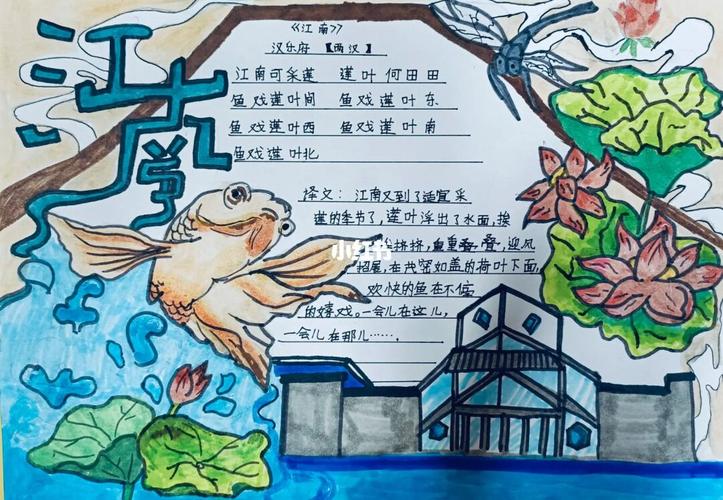 江南
《江南》
汉乐府 【两汉】
江南可采莲 莲叶何田田
鱼戏莲叶间 鱼戏莲叶东
鱼戏莲叶西 鱼戏莲叶南
鱼戏莲叶北
译文: 江南又到了适宜采
莲的季节了,莲叶浮出了水面,挨
挨挤挤,重重叠叠,迎风
招展,在茂密如盖的荷叶下面,
欢快的鱼在不停
的嬉戏。一会儿在这儿,
一会儿在那儿……,
小红书